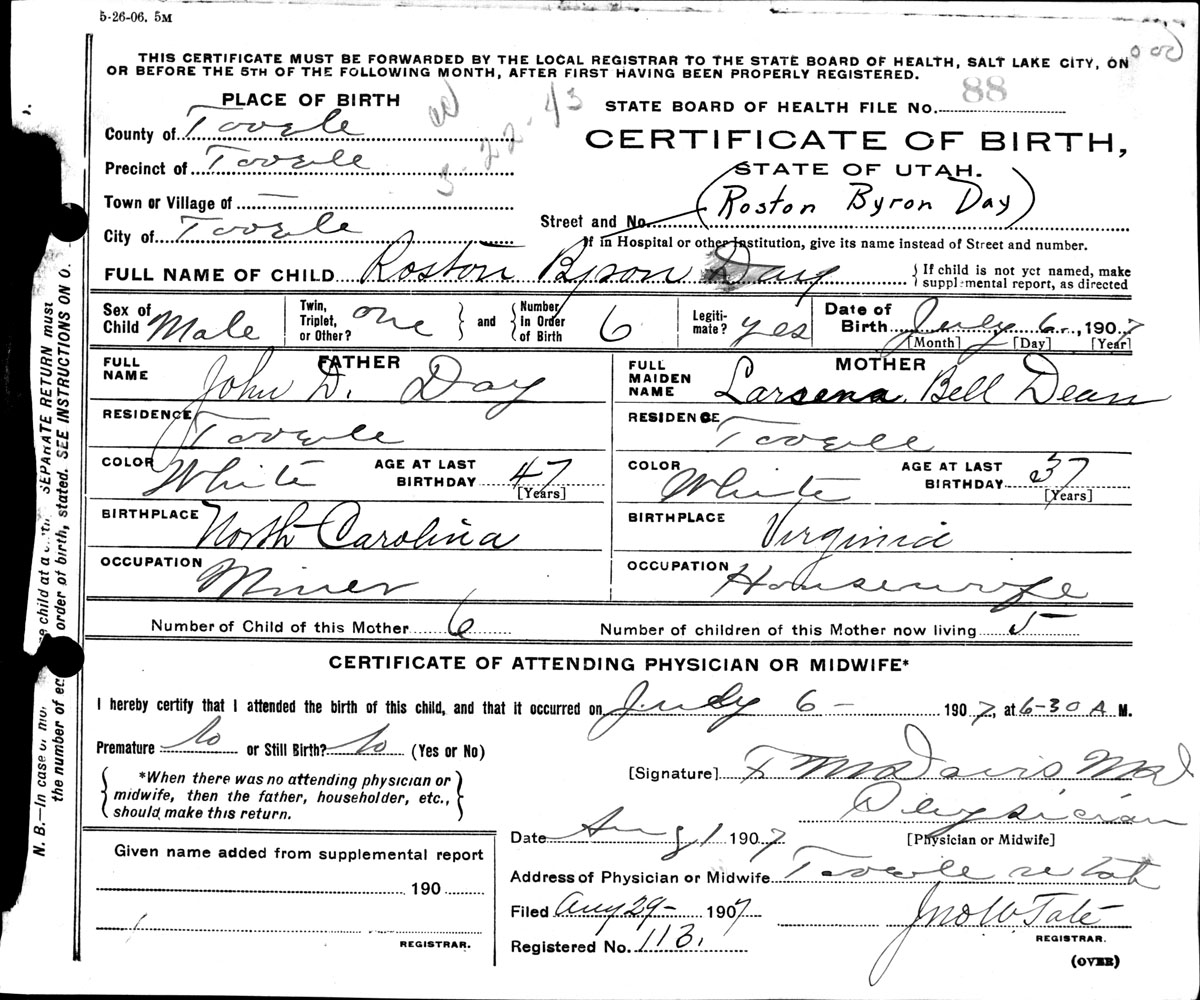 5-26-06. 5M
THIS CERTIFICATE MUST BE FORWARDED BY THE LOCAL REGISTRAR TO THE STATE BOARD OF HEALTH, SALT LAKE CITY, ON
OR BEFORE THE 5TH OF THE FOLLOWING MONTH, AFTER FIRST HAVING BEEN PROPERLY REGISTERED.
PLACE OF BIRTH
STATE BOARD OF HEALTH FILE No. 88
3-22-43
County of Tooele
CERTIFICATE OF BIRTH,
Precinct of Tooele
STATE OF UTAH.
Town or Village of —
(Roston Byron Day)
Street and No.
City of Tooele
If in Hospital or other Institution, give its name instead of Street and number.
FULL NAME OF CHILD Roston Byron Day
{ If child is not yet named, make
supplemental report, as directed
Sex of Child Male
Twin, Triplet, or Other? one } and { Number In Order of Birth 6
Legiti-mate? yes
Date of Birth July 6, 1907
[Month] [Day] [Year]
FATHER
FULL NAME John D. Day
RESIDENCE Tooele
COLOR White AGE AT LAST BIRTHDAY 47 [Years]
BIRTHPLACE North Carolina
OCCUPATION Miner
MOTHER
FULL MAIDEN NAME Larsena Bell Dean
RESIDENCE Tooele
COLOR White AGE AT LAST BIRTHDAY 37 [Years]
BIRTHPLACE Virginia
OCCUPATION Housewife
Number of Child of this Mother 6 Number of children of this Mother now living 5
CERTIFICATE OF ATTENDING PHYSICIAN OR MIDWIFE*
I hereby certify that I attended the birth of this child, and that it occurred on July 6 - 1907, at 6-30 A M.
Premature No or Still Birth? No (Yes or No)
{ *When there was no attending physician or
midwife, then the father, householder, etc.,
should make this return. }
[Signature] F M Davis Md
Physician
[Physician or Midwife]
Date Aug 1 1907
Address of Physician or Midwife Tooele Utah
Filed Aug 29- 1907 Jno W Tate
REGISTRAR.
Registered No. 113.
(OVER)
Given name added from supplemental report
190
REGISTRAR.
N. B.—In case of SEPARATE RETURN must
the number of order of birth, stated. SEE INSTRUCTIONS ON O.